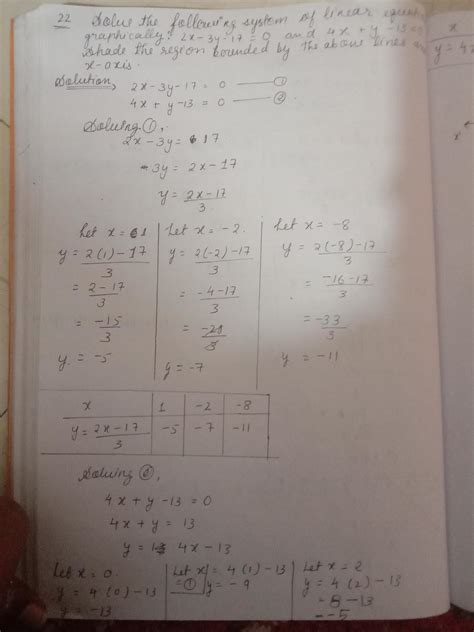 22 Solve the following system of linear equat
graphically: 2x-3y-17=0 and 4x+y-13=0
shade the region bounded by the above lines and
x-axis.
Solution, 2x-3y-17=0 — ①
4x+y-13=0 — ②
Solving ①,
2x-3y=17
-3y=2x-17
y=2x-17/3
Let x=1 Let x=-2. Let x=-8
y=2(1)-17/3 y=2(-2)-17/3 y=2(-8)-17/3
=2-17/3 =-4-17/3 =-16-17/3
=-15/3 =-21/3 =-33/3
y=-5 y=-7 y=-11
x 1 -2 -8
y=2x-17/3 -5 -7 -11
Solving ②,
4x+y-13=0
4x+y=13
y=13 4x-13
Let x=0 Let x=4(1)-13 Let x=2
y=4(0)-13 =① y=-9 y=4(2)-13
y=-13 =8-13
=-5
x
y=4x